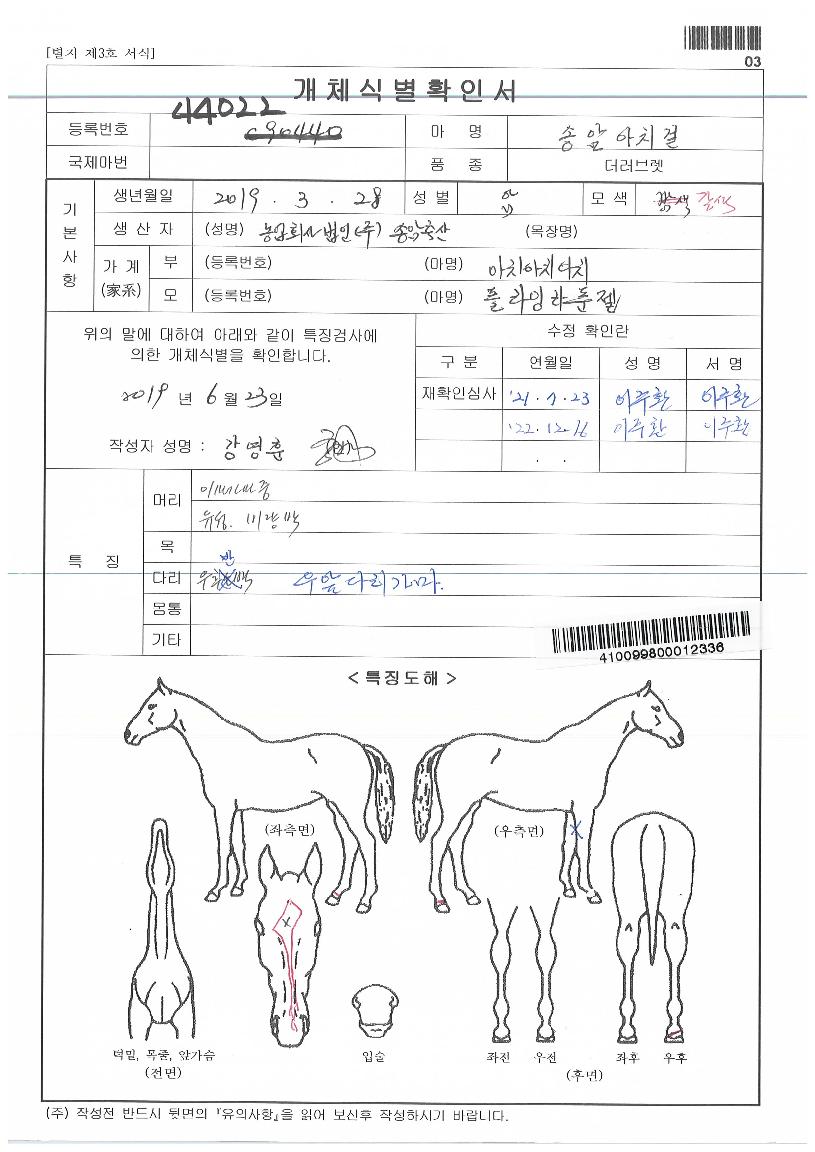 [별지 제3호 서식]
03
개체식별확인서
44022
등록번호 090440 마 명 송암아치걸
국제아번 품 종 더러브렛
기본사항
생년월일 2019 . 3 . 28 성별 암 모색 갈색
생 산 자 (성명) 농업회사법인(주) 송암축산 (목장명)
가계 (家系) 부 (등록번호) (마명) 아치아치아치
모 (등록번호) (마명) 플라잉라툰젤
위의 말에 대하여 아래와 같이 특징검사에
의한 개체식별을 확인합니다.
2019 년 6 월 23 일
작성자 성명 : 강영훈
수정 확인란
구 분 연월일 성 명 서 명
재확인심사 '21 . 7 . 23 이주환 이주환
'22 . 12 . 16 이주환 이주환
. .
특 징
머리
유성. 비량백
목
반
다리 우후 백 우앞다리가마.
몸통
기타
410099800012336
< 특징도해 >
(좌측면) (우측면)
턱밑, 목줄, 앞가슴
(전면)
입술
좌진 우전 좌후 우후
(후면)
(주) 작성전 반드시 뒷면의 『유의사항』을 읽어 보신후 작성하시기 바랍니다.